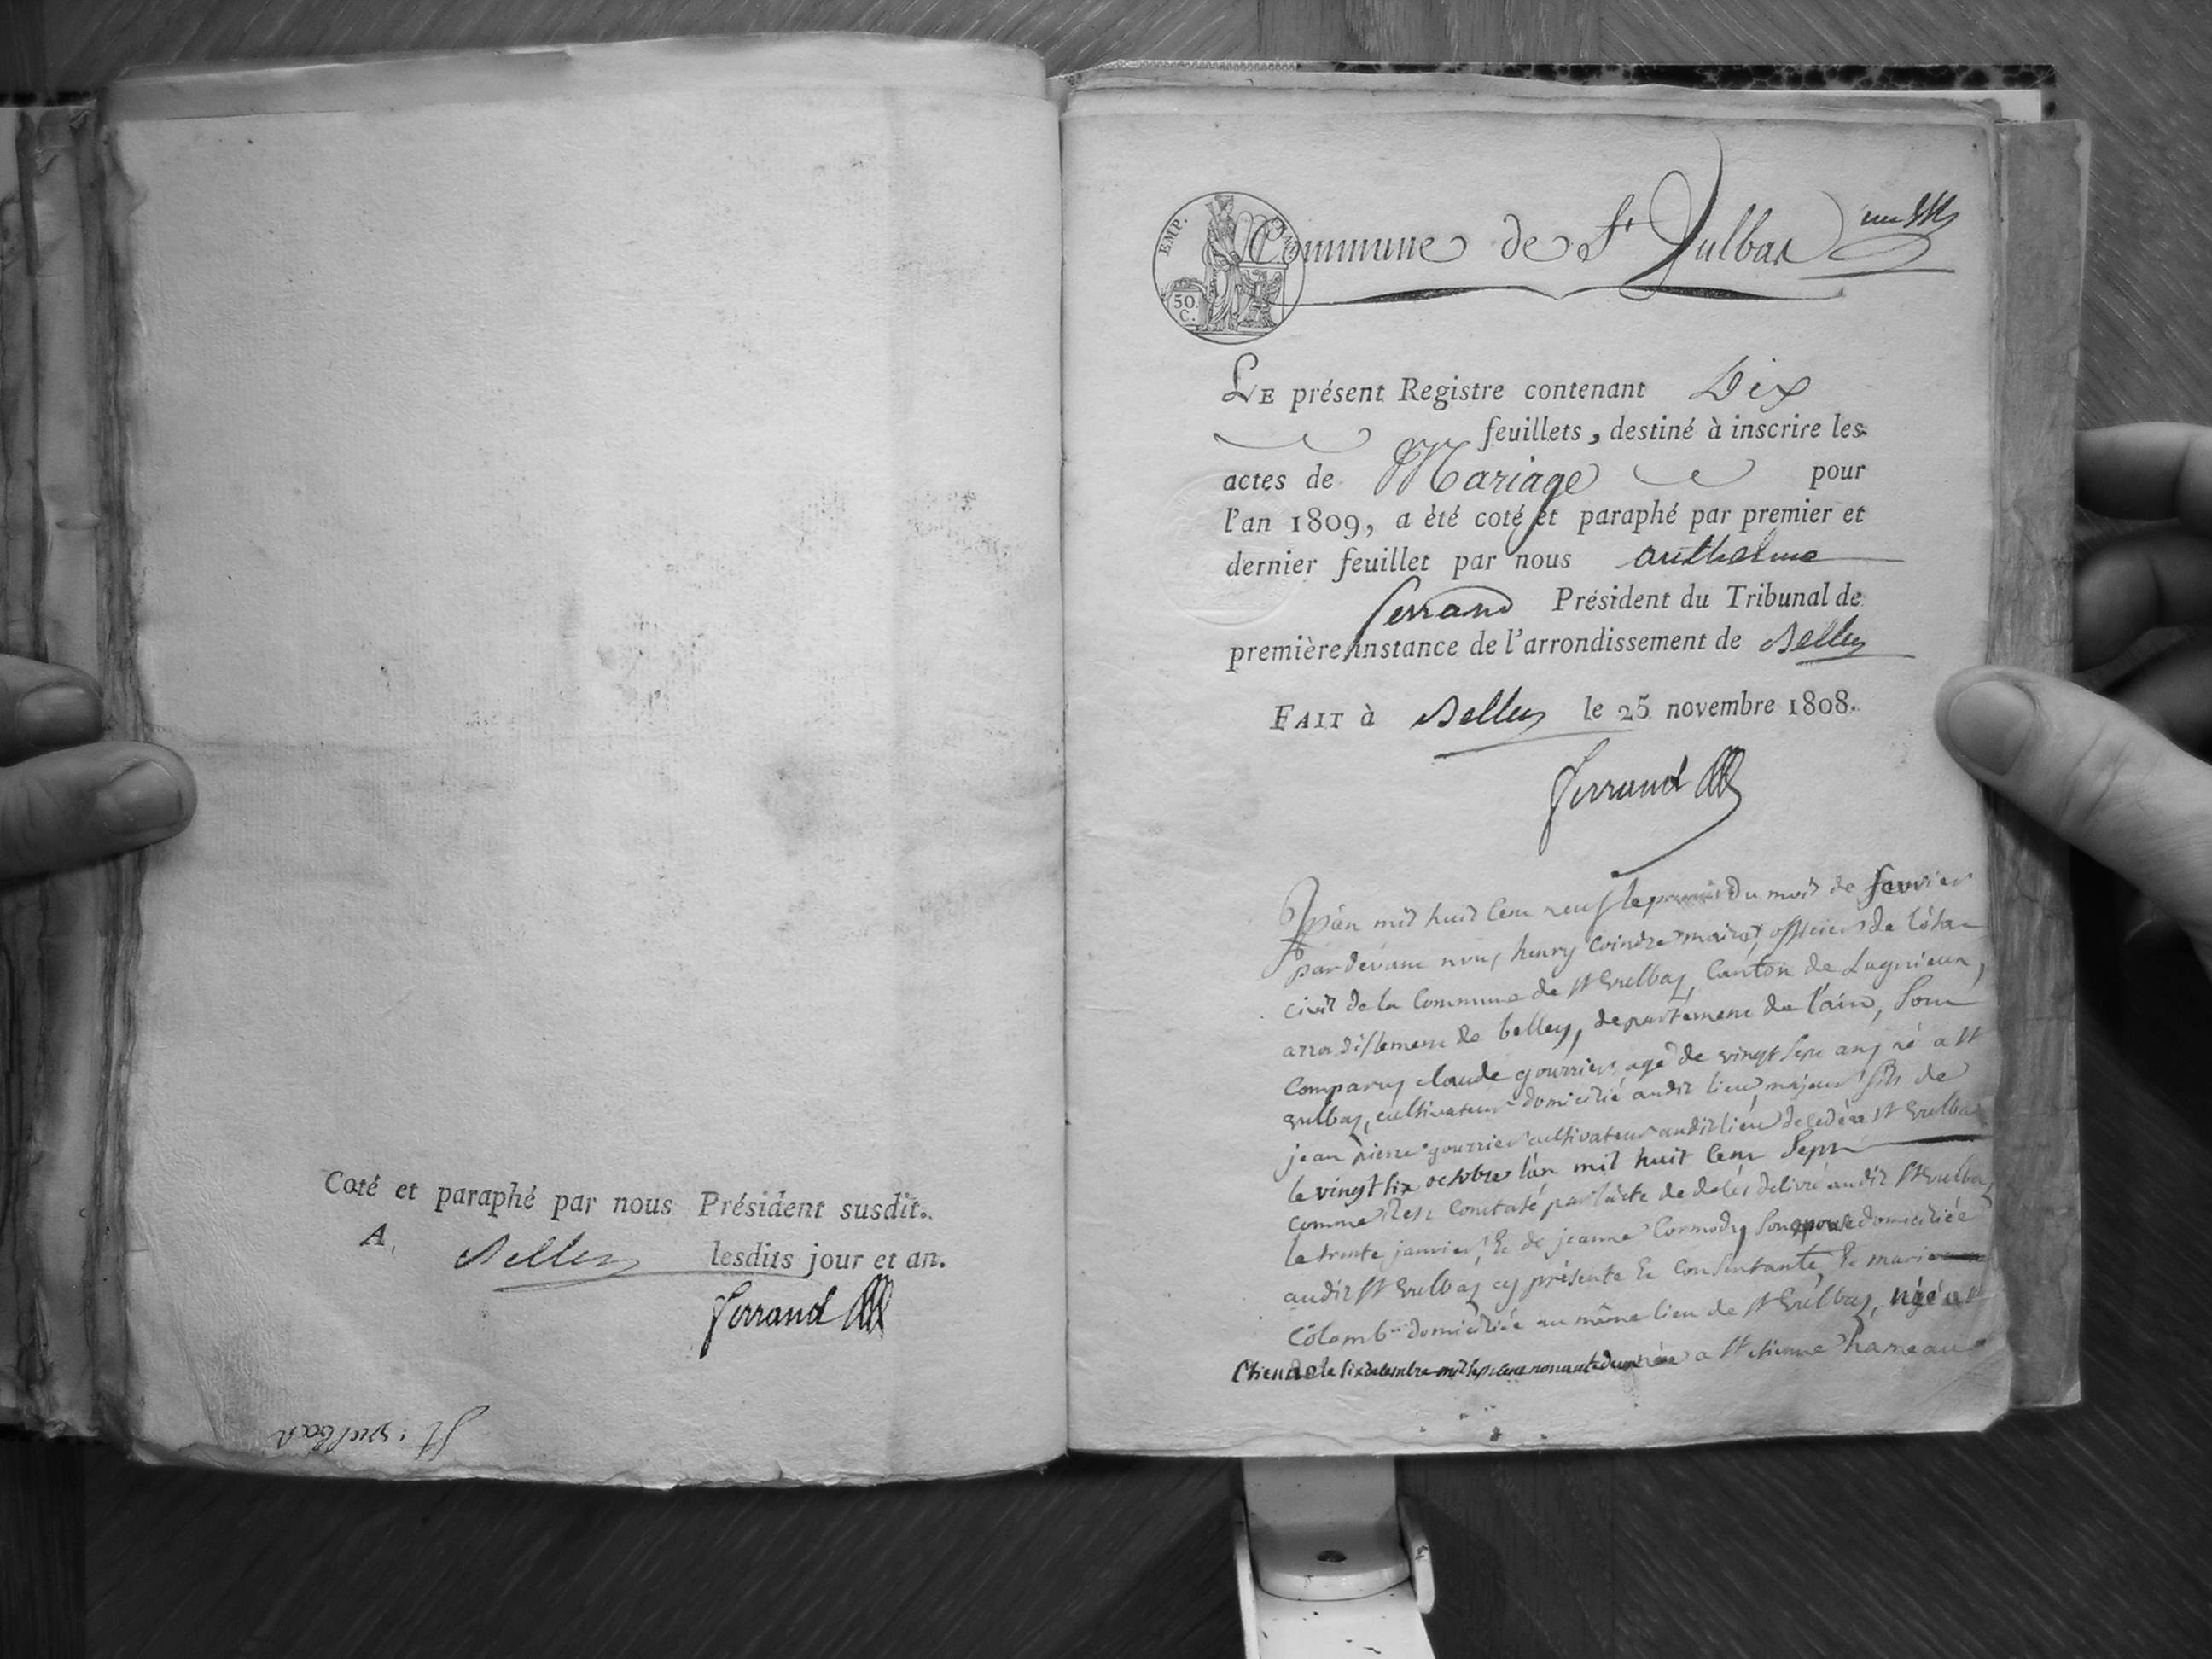 Coté et paraphé par nous Président susdit.
A Belley lesdits jour et an.
Ferrand
St vulbas
EMP.
50.
C.
Commune de St Vulbas
LE présent Registre contenant Dix
feuillets, destiné à inscrire les
actes de Mariage pour
l'an 1809, a èté coté et paraphé par premier et
dernier feuillet par nous anthelme
ferrand Président du Tribunal de
première instance de l'arrondissement de Belley
FAIT à Belley le 25 novembre 1808.
Ferrand
L'an mil huit cent neuf le premier du mois de fevrier
pardevant nous henry Cointre maire officier de l'état
civil de la Commune de St Vulbas, Canton de Lagnieux,
arrondissement de belley, departement de l'ain, sont
comparus claude gourrier agé de vingt sept ans né a St
vulbas, cultivateur domicilié audit lieu majeur fils de
jean pierre gourrier cultivateur audit lieu decedé a St Vulbas
le vingt six octobre l'an mil huit cent sept
comme il est constaté par l'acte de décés delivré audit St Vulbas
le trente janvier, et de jeanne Cormody son epouse domiciliée
audit St Vulbas cy présente et consentante, et marie
Colomb domiciliée au même lieu de St Vulbas, née a St
le six decembre mil sept cent nonante a St etienne hameau